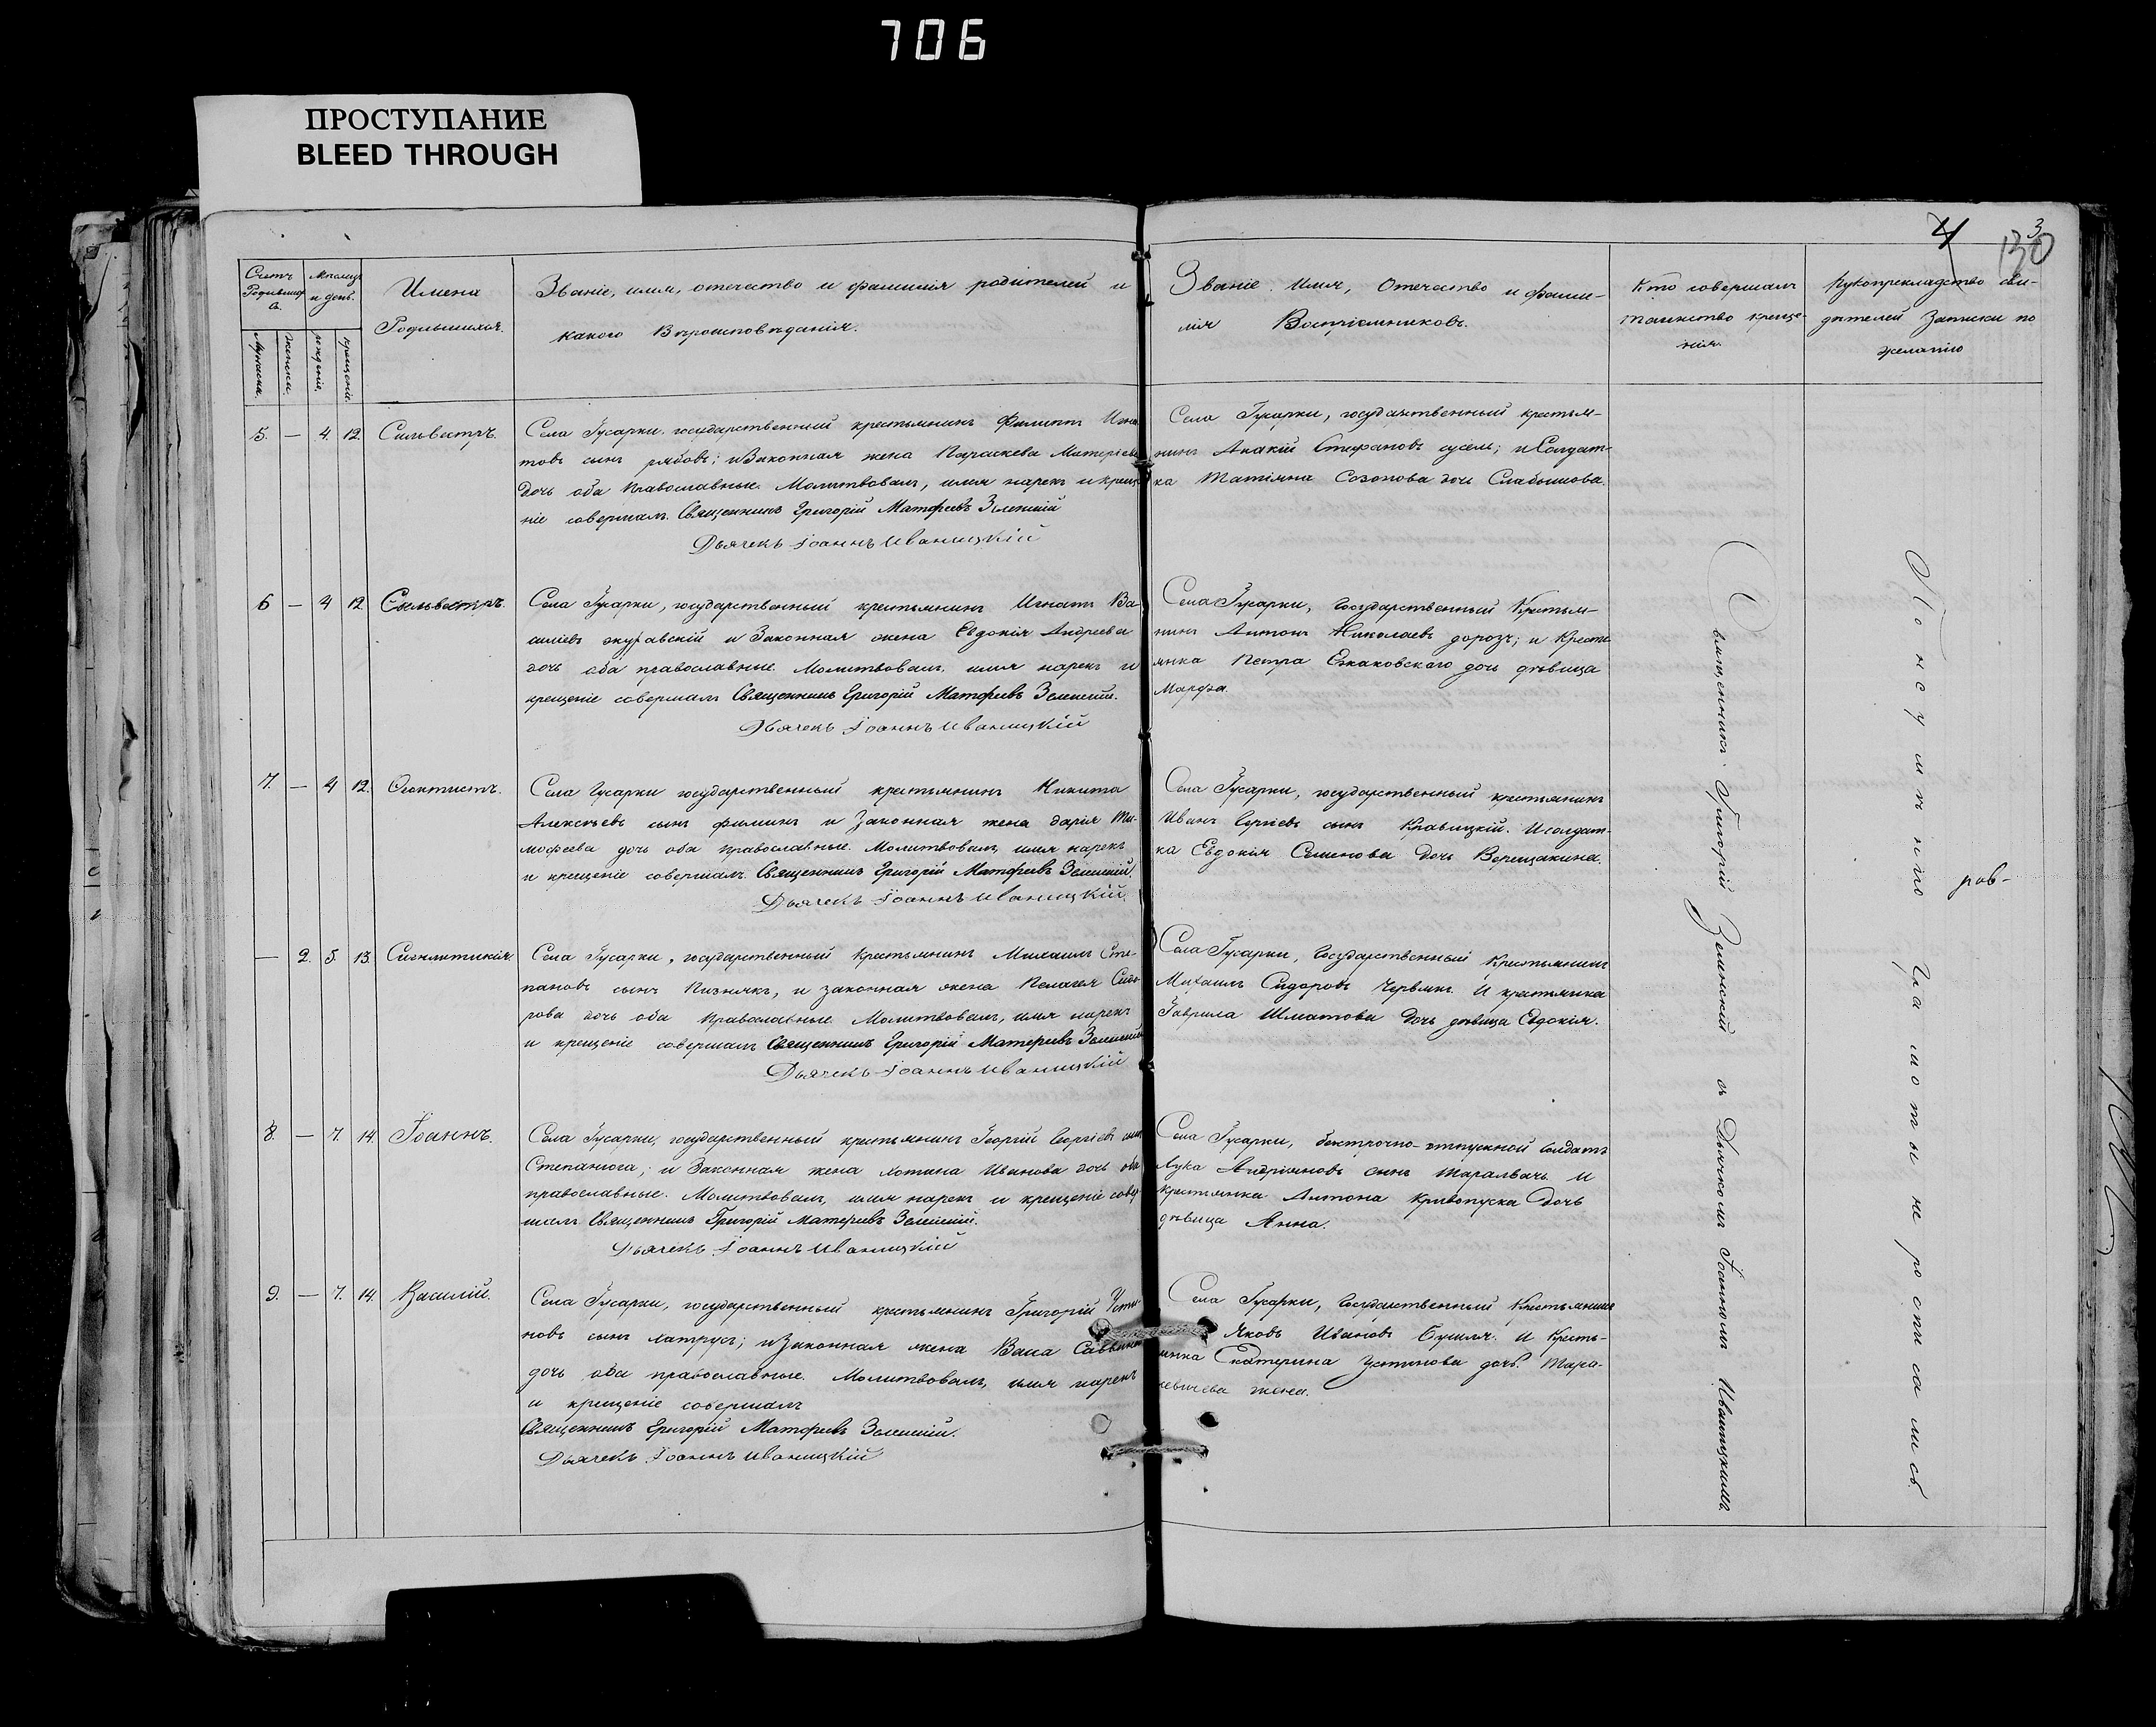 706
ПРОСТУПАНИЕ
BLEED THROUGH
4 3
130
Счетъ Родившихся.
Мѣсяцъ и день.
Мужеска.
Женска.
рожденіе.
крещеніе.
Имена
Родившихся.
Званіе, имя, отечество и фамилія родителей и
какого Вѣроисповѣданія.
Званіе. Имя, Отечество и фами-
лія Воспріемниковъ.
Кто совершалъ
таинство креще-
нія.
Рукоприкладство сви-
дѣтелей Записки по
желанію
5. — 4. 12. Сильвестръ.
Села Гусарки, государственный крестьянинъ Филиппъ Игна
товъ сынъ рябовъ; и Законная жена Параскева
дочь оба Православные. Молитвовалъ, имя нарекъ и креще
ніе совершалъ. Священникъ Григорій Матфеевъ Зеленскій
Дьячекъ Іоаннъ Иваницкій
Села Гусарки, государственный крестья-
нинъ Акакій Стефановъ сусель; и Солдат-
ка Татіяна Созонова дочь Слабышова.
6 — 4 12 Сильвестръ.
Села Гусарки, государственный крестьянинъ Игнатъ Ва
силіевъ журавскій и Законная жена Евдокія Андреева
дочь оба православные. Молитвовалъ, имя нарекъ и
крещеніе совершалъ Священникъ Григорій Матфеевъ Зеленскій.
Дьячекъ Іоаннъ Иваницкій
Села Гусарки, Государственный Крестья-
нинъ Антонъ Николаевъ дорозъ; и Кресть
янка Петра Сжаковскаго дочь дѣвица
Марфа.
7. — 4 12. Феоктистъ.
Села Гусарки государственный крестьянинъ Никита
Алексѣевъ сынъ филинъ и Законная жена дарія Ти-
мофеева дочь оба православные. Молитвовалъ, имя нарекъ
и крещеніе совершалъ. Священникъ Григорій Матфеевъ Зеленскій.
Дьячекъ Іоаннъ Иваницкій.
Села Гусарки, государственный крестьянинъ
Иванъ Сергіевъ сынъ Кравицкій. И солдат-
ка Евдокія Семенова Дочь Верещакина.
— 2. 5. 13. Сигклитикія.
Села Гусарки, государственный Крестьянинъ Михаилъ Сте-
пановъ сынъ Пизнякъ, и законная жена Пелагея Сидо
рова дочь оба Православные. Молитвовалъ, имя нарекъ
и крещеніе совершалъ Священникъ Григорій Матфеевъ Зеленскій
Дьячекъ Іоаннъ Иваницкій
Села Гусарки, Государственный Крестьянинъ
Михаилъ Сидоровъ Червякъ. И крестьянка
Гаврила Шматова Дочь дѣвица Евдокія.
8. — 7. 14. Іоаннъ.
Села Гусарки, государственный крестьянинъ Георгій Сергіевъ сынъ
Степанюга; и Законная жена хотина Иванова дочь оба
православные. Молитвовалъ, имя нарекъ и крещеніе совер
шалъ Священникъ Григорій Матфеевъ Зеленскій.
Дьячекъ Іоаннъ Иваницкій
Села Гусарки, безсрочно-отпускной Солдатъ
Лука Андріяновъ сынъ таралвачъ. И
крестьянка Антона Кривопуска Дочь
дѣвица Анна.
9. — 7. 14. Василій.
Села Гусарки, государственный крестьянинъ Григорій Усти-
новъ сынъ латрусъ; и Законная жена Васа Саввина
дочь оба православные. Молитвовалъ, имя нарекъ
и крещеніе совершалъ
Священникъ Григорій Матфеевъ Зеленскій.
Дьячекъ Іоаннъ Иваницкій
Села Гусарки, Государственный Крестьянинъ
Яковъ Ивановъ Бушля. И Кресть-
янка Екатерина Устинова дочь. Мара-
кевичева жена.
Священникъ Григорій Зеленскій съ Дьячкомъ Іоанномъ Иваницкимъ.
По неумѣнію грамоты не росписались.